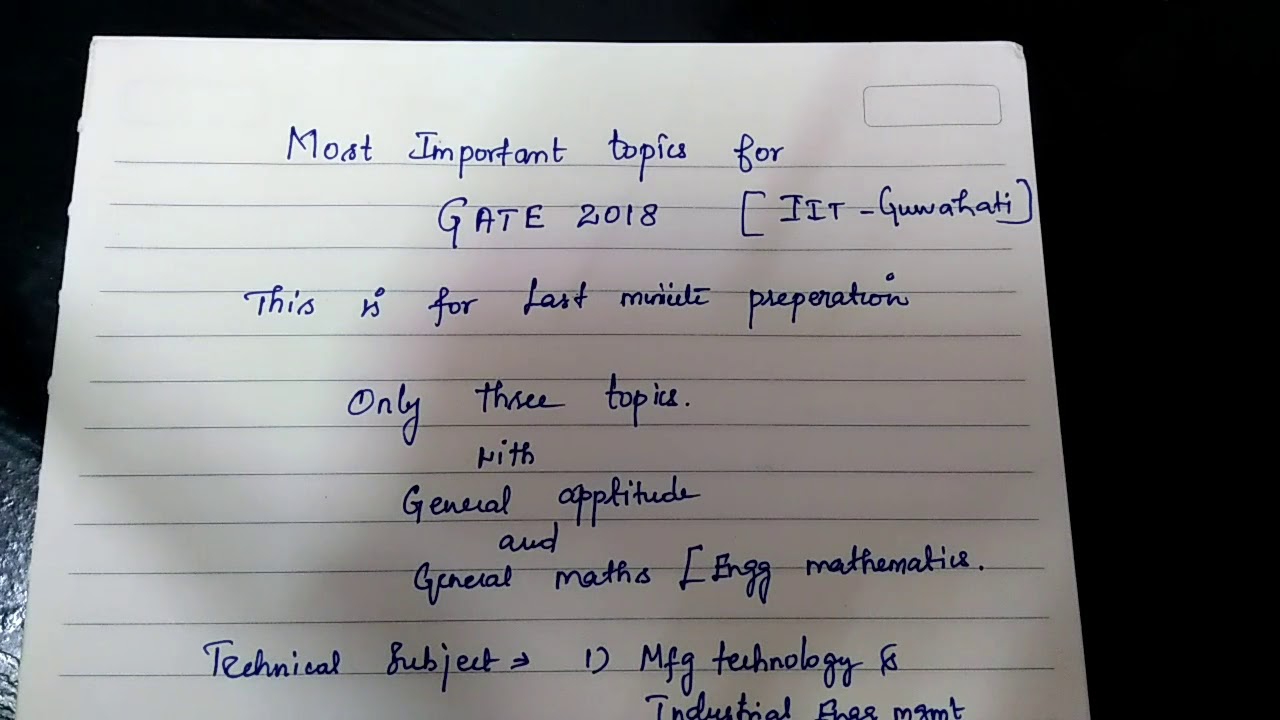 Most Important topics for
GATE 2018 [IIT-Guwahati]
This is for Last minute preperation
Only three topics.
with
General apptitude
and
General maths [Engg mathematics.
Technical Subject ⇒ 1) Mfg technology &
Industrial Engg mgmt